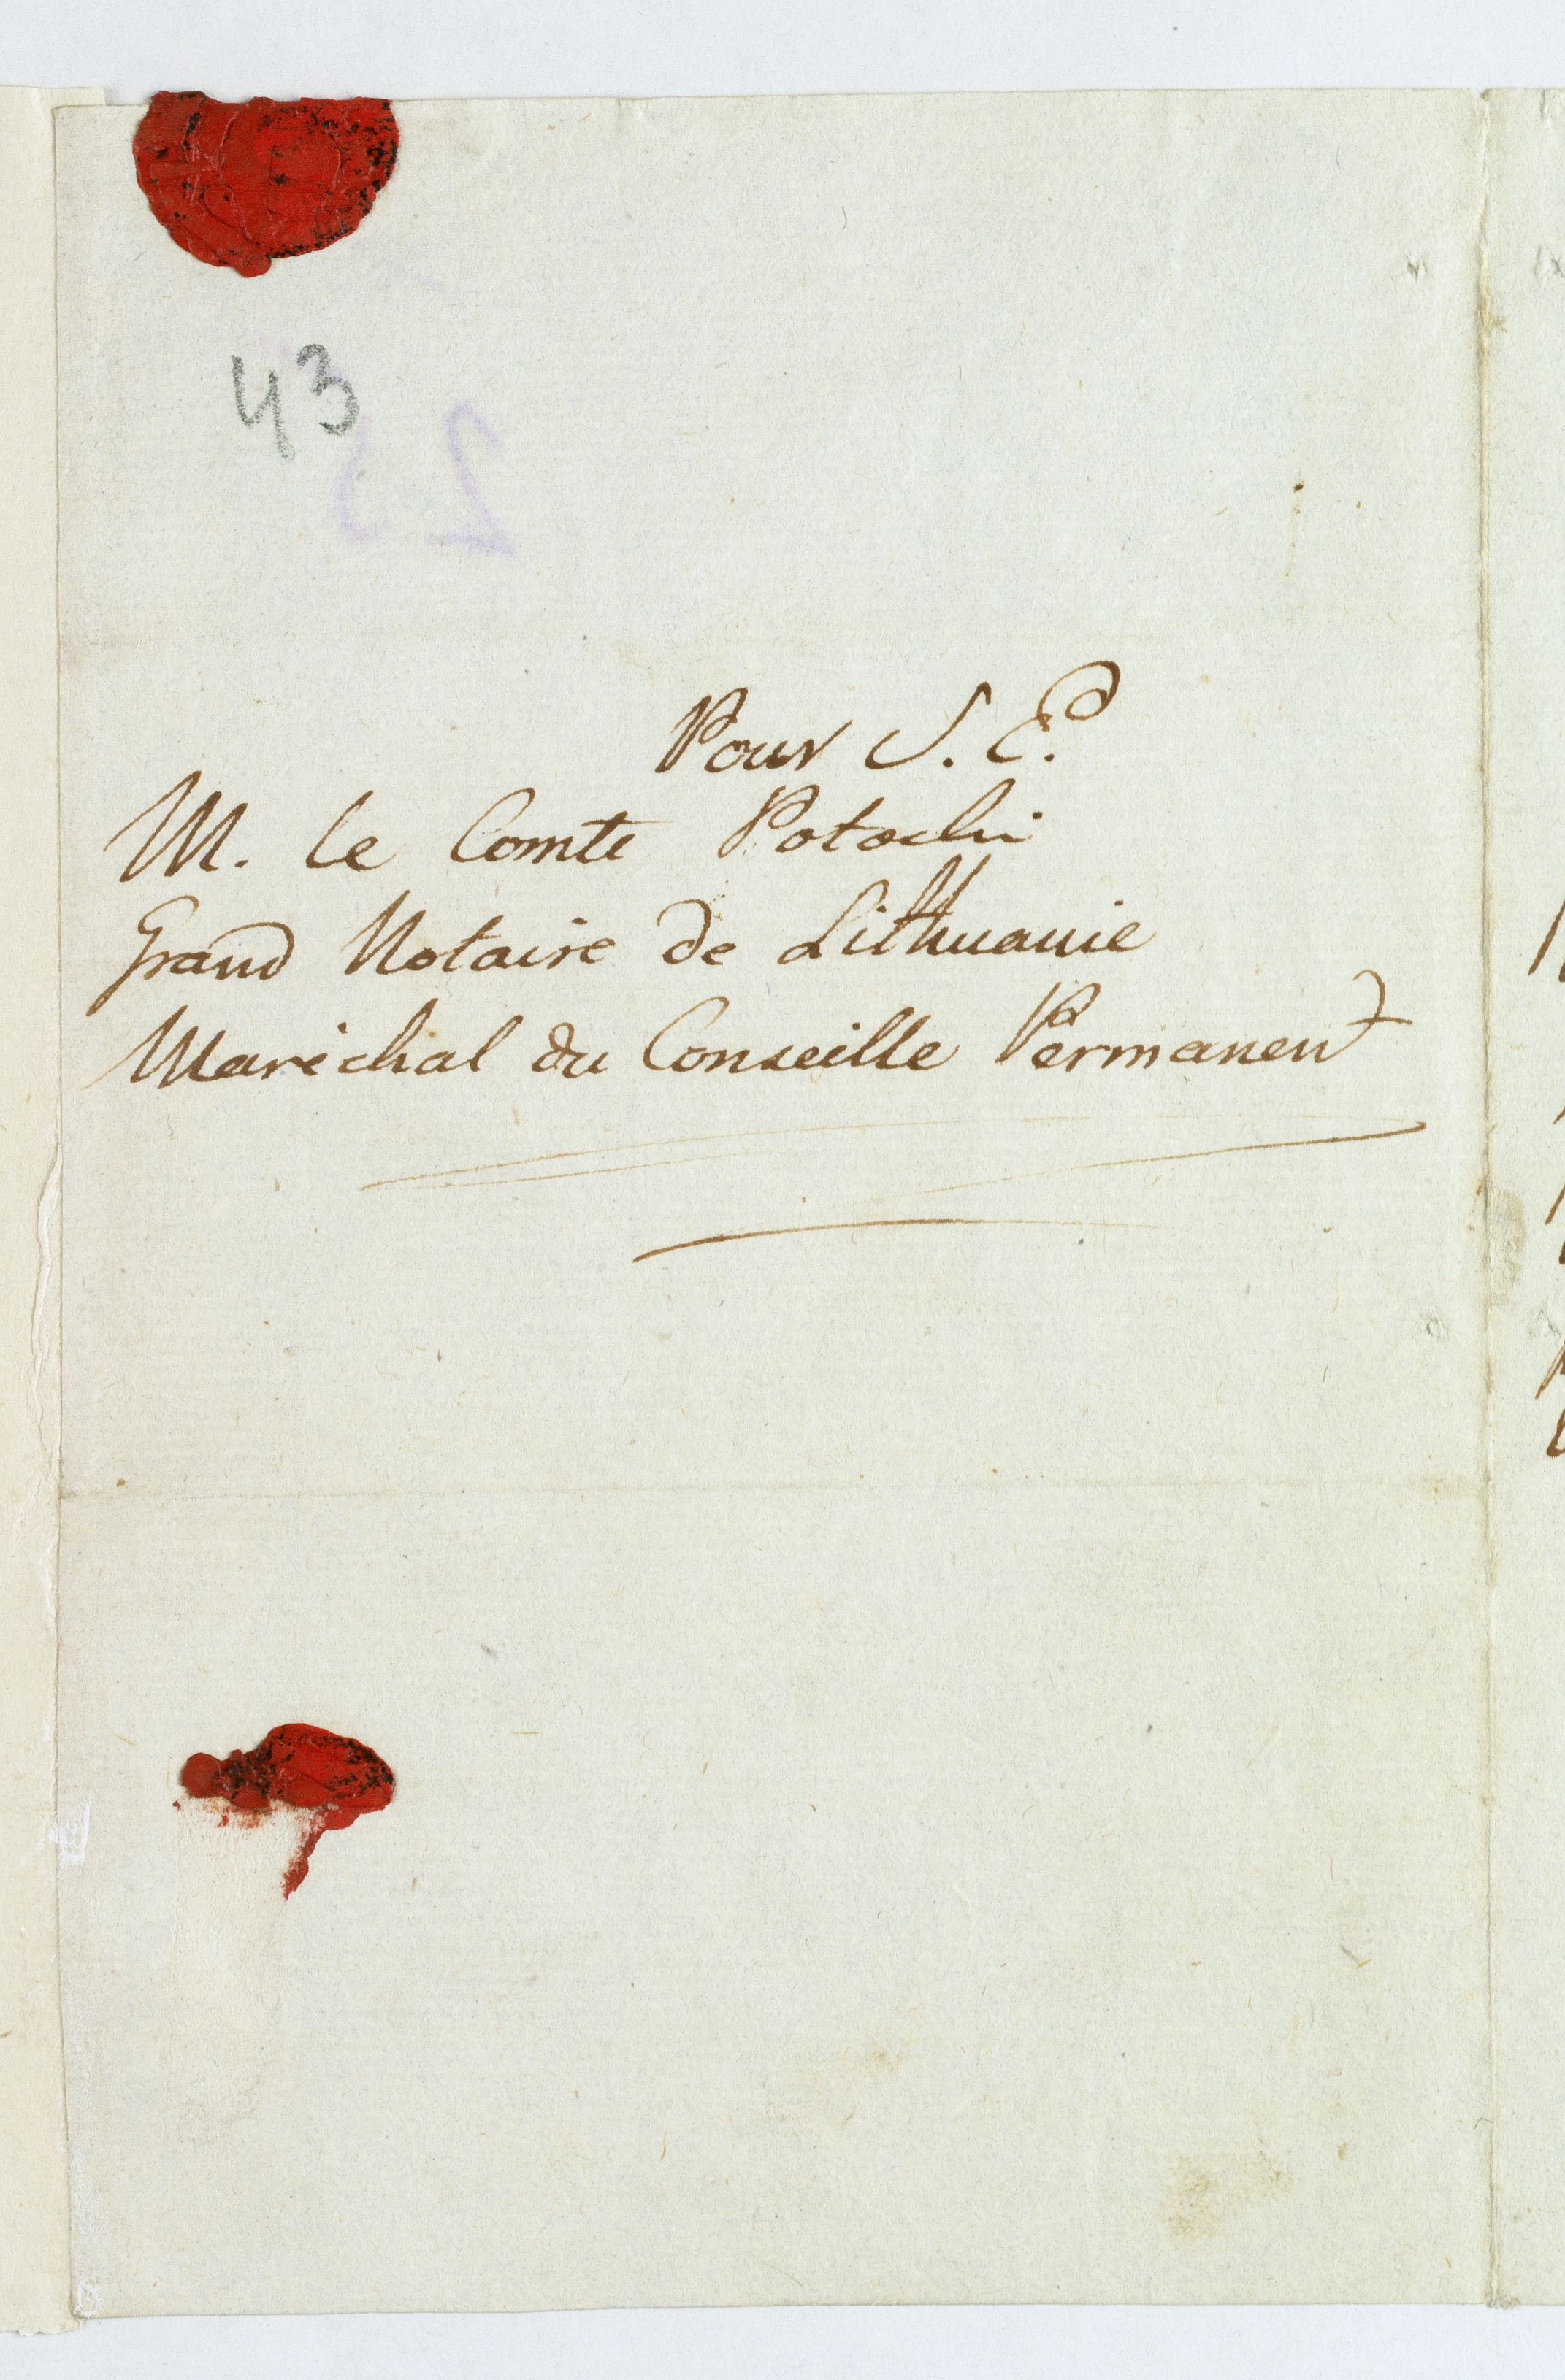 43
Pour S. E.
M. le Comte Potocki
Grand Notaire de Lithuanie
Maréchal du Conseille Permanent